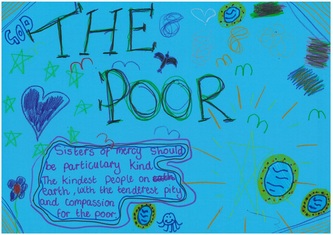 GOD
THE
POOR
Sisters of mercy should
be particulary kind.
The kindest People on earth
earth, with the tenderest pity
and compassion
for the poor.